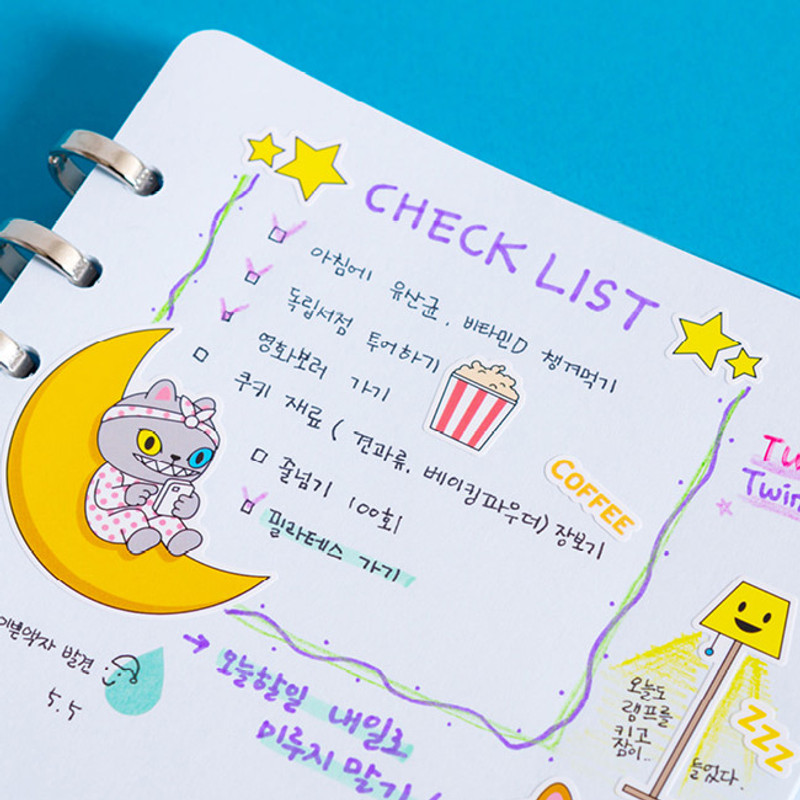 CHECK LIST
아침에 유산균, 비타민D 챙겨먹기
독립서점 투어하기
영화보러 가기
쿠키 재료 (견과류, 베이킹파우더) 장보기
줄넘기 100회
필라테스 가기
COFFEE
Twin
발견
5.5
→ 오늘할일 내일로
미루지 말기
오늘도
램프를
키고
잠이..
들었다.
ZZZ